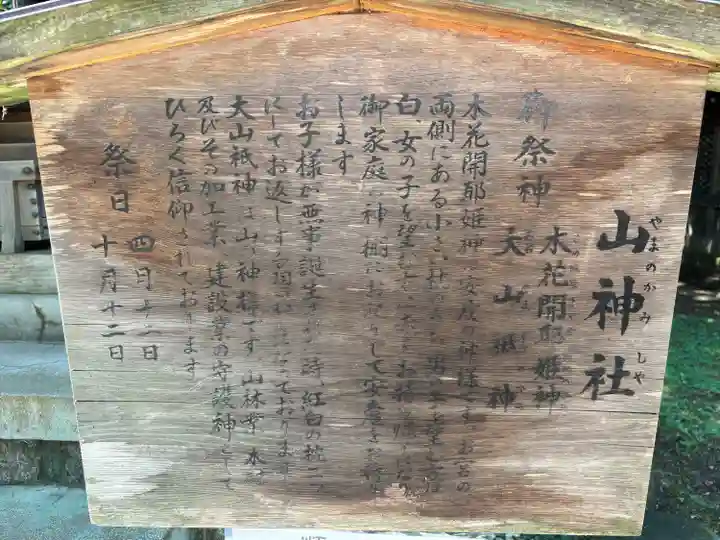 山神社
やまのかみしゃ
御祭神
木花開耶姫神
大山祇神
木花開耶姫神 安産の神様です お宮の
両側にある小さい 男の子を望む
白、女の子を望む お持ち帰り
御家庭の神棚におまつりして安産をお祈り
します
お子様が無事誕生 時、紅白の枕二
にしてお返しする習わしになっております
大山祇神は山の神様です 山林業、木
及びその加工業、建設業の守護神として
ひろく信仰されております
祭日
四月十二日
十月十二日